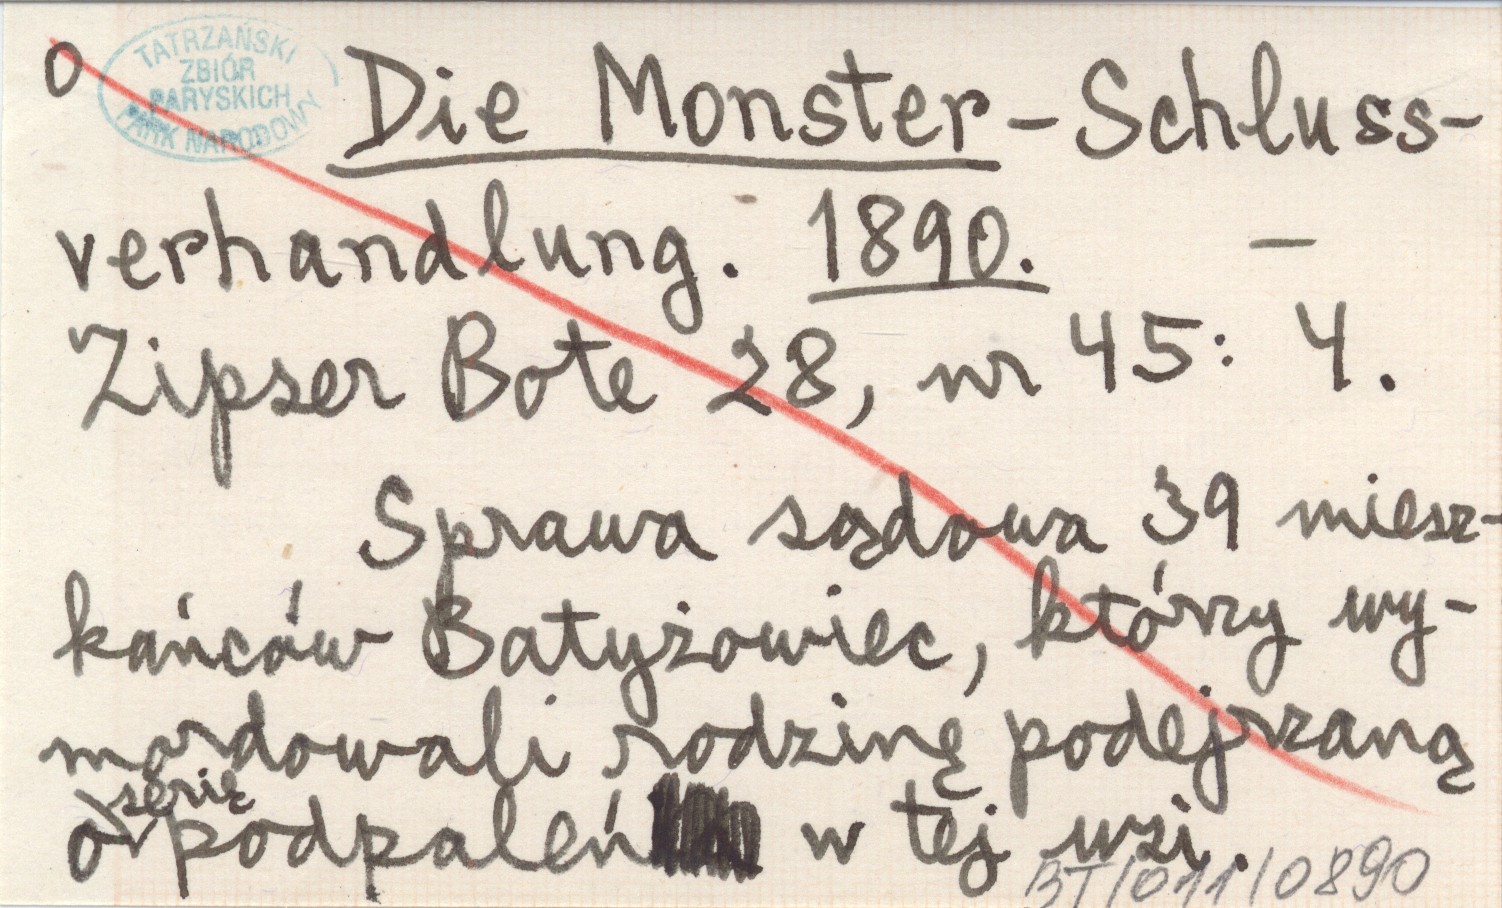 o
TATRZAŃSKI
ZBIÓR
PARYSKICH
PARK NARODOWY
Die Monster-Schluss-
verhandlung. 1890. –
Zipser Bote 28, nr 45: 4.
Sprawa sądowa 39 miesz-
kańców Batyżowiec, którzy wy-
mordowali rodzinę podejrzaną
o serię podpaleń w tej wsi.
BT/011/0890